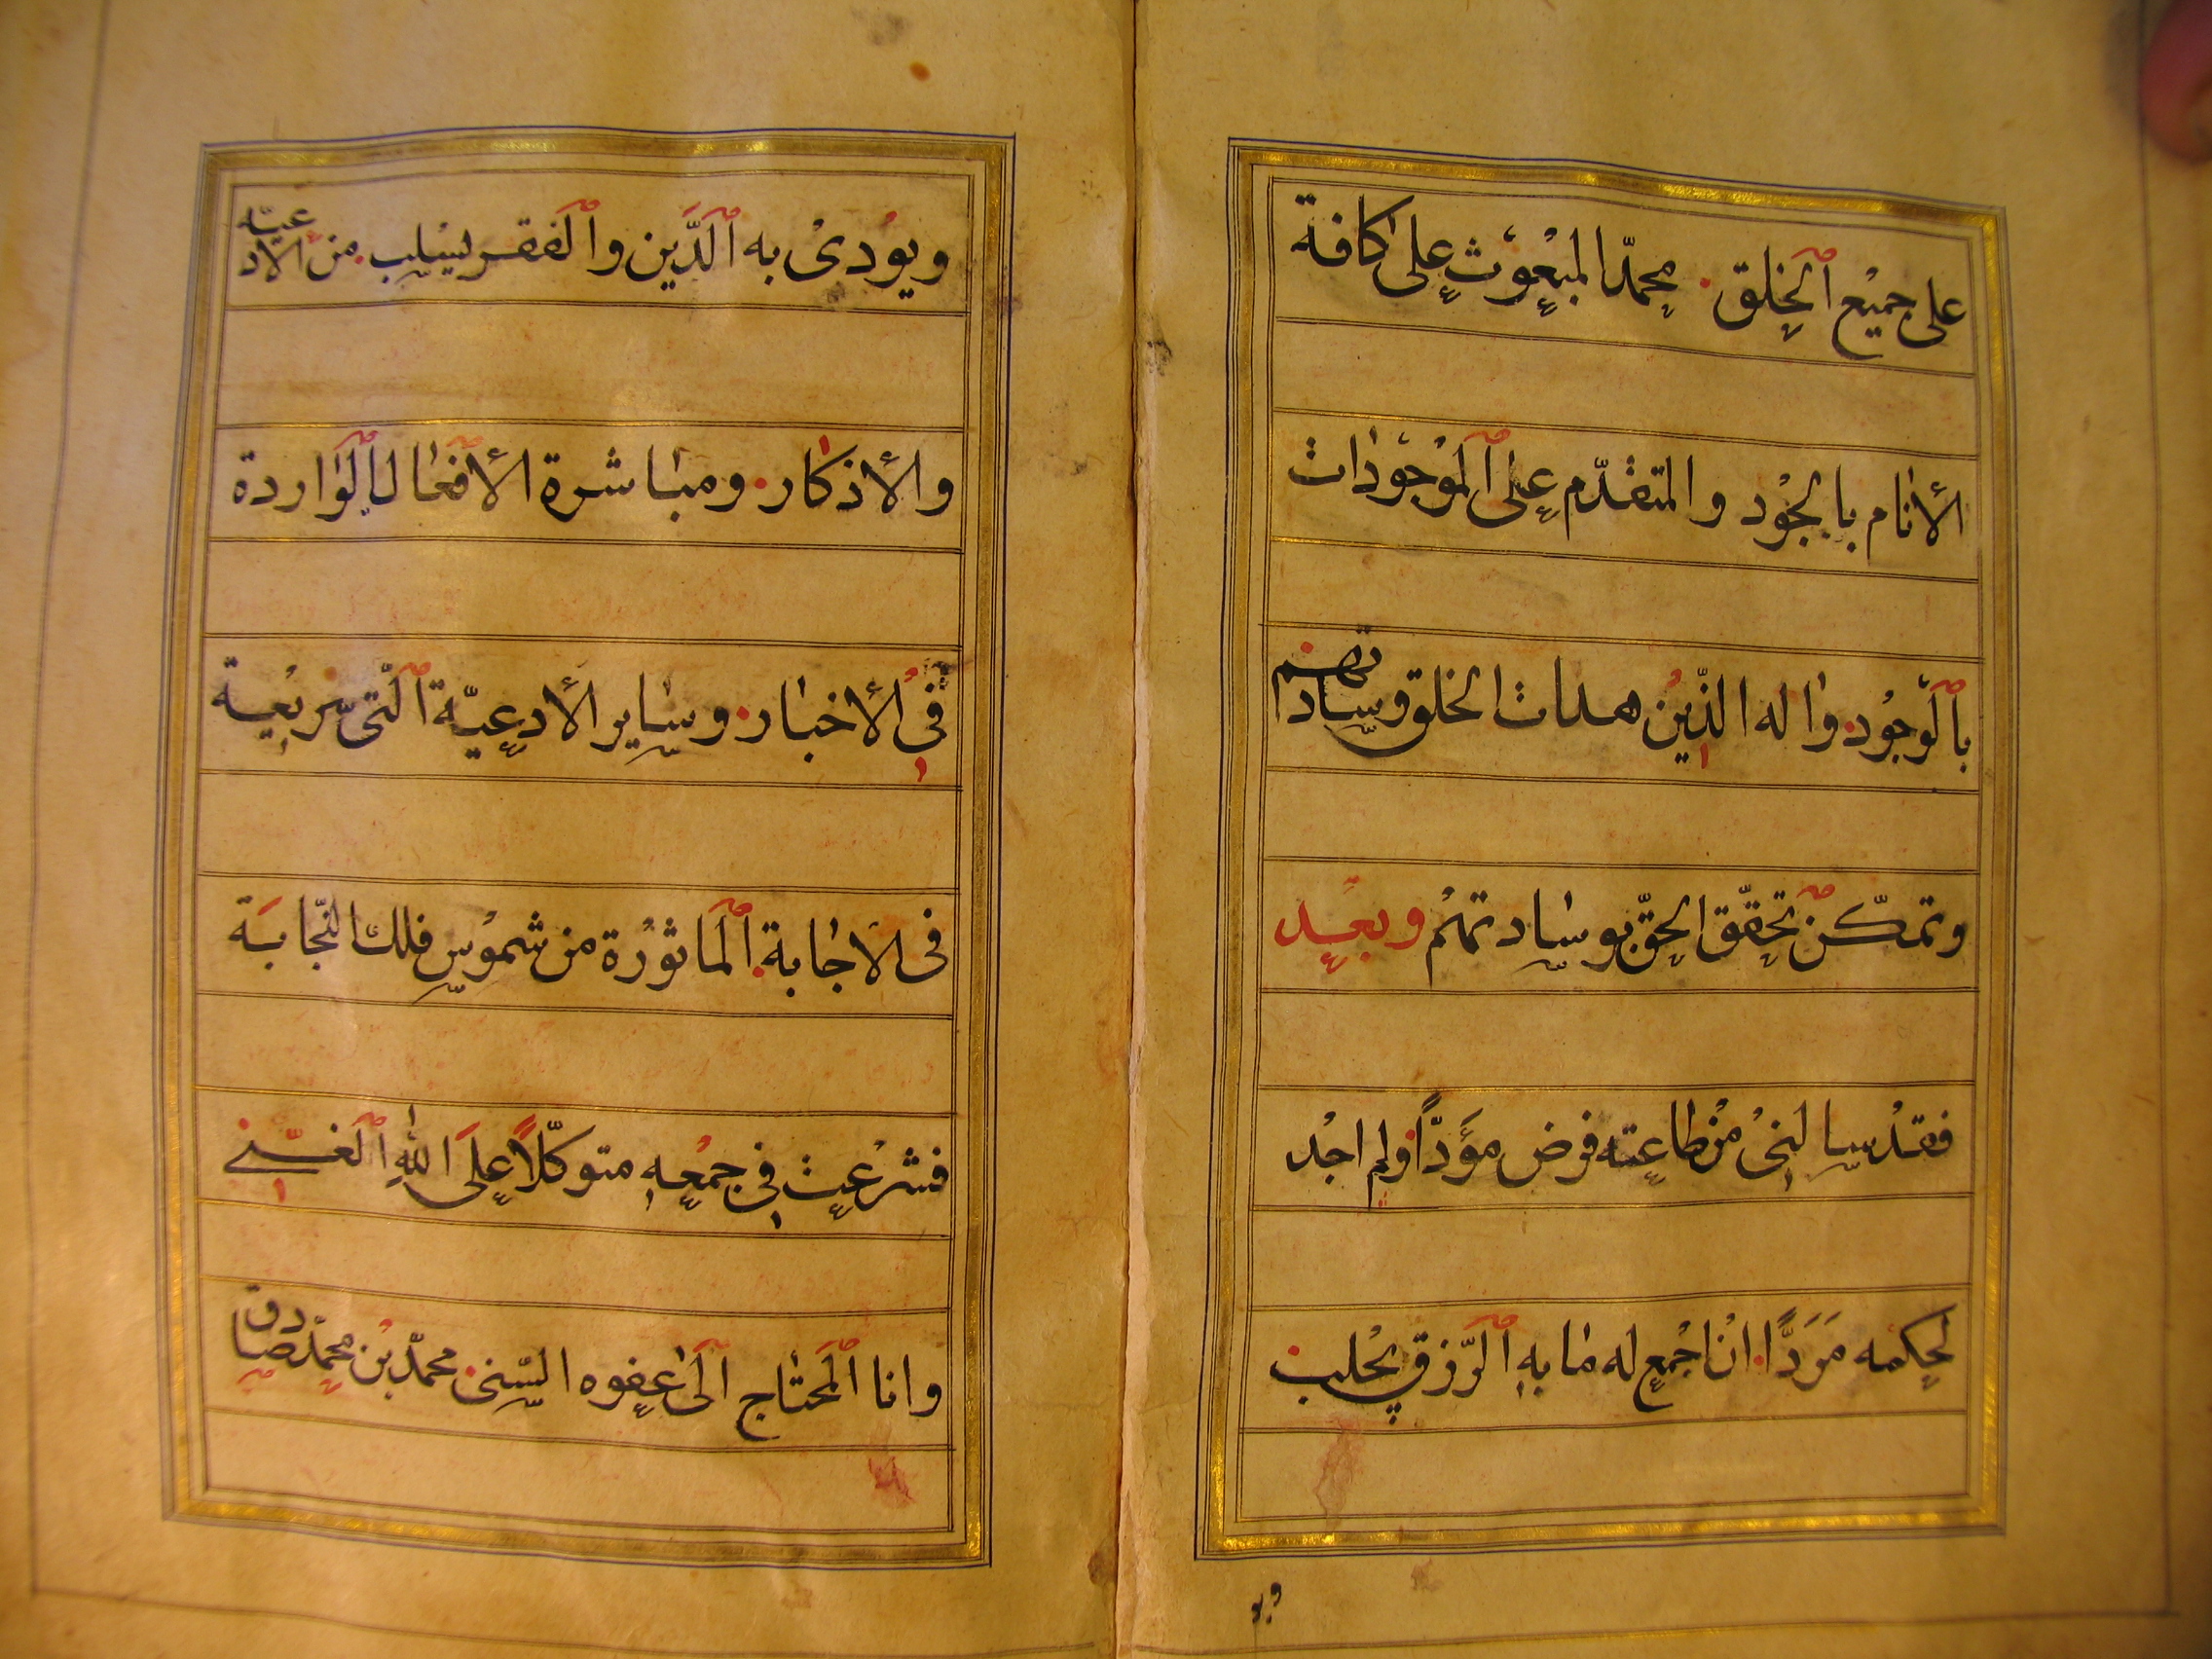 على جميع ٱلخلق. محمدّ المبعوث على كافة
الأنام بالجود والمتقدّم على ٱلموجودات
بٱلوجود. واله الذّين هدات الخلق وساداتهم
وتمكّن تحقّق الحقّ بوسادتهم وبعد
فقد سالنى من طاعته فرض مؤدّاً ولم اجد
لحكمه مَرَدًّا. ان اجمع له ما به ٱلرّزق يحلب
ويو
ويودى به ٱلدَّين وٱلفقر يسلب. من الادعيّه
والأذكار. ومباشرة الأفعال ٱلواردة
فى الأخبار. وساير الأدعيّة ٱلتى سريعة
فى الاجابة. ٱلماثورة من شموس فلك النّجابَة
فشرعت فى جمعه متوكّلاً على الله ٱلغنى
وانا ٱلمحتاج ٱلى عفوه السّنى. محمدّ بن محمدّ صادق